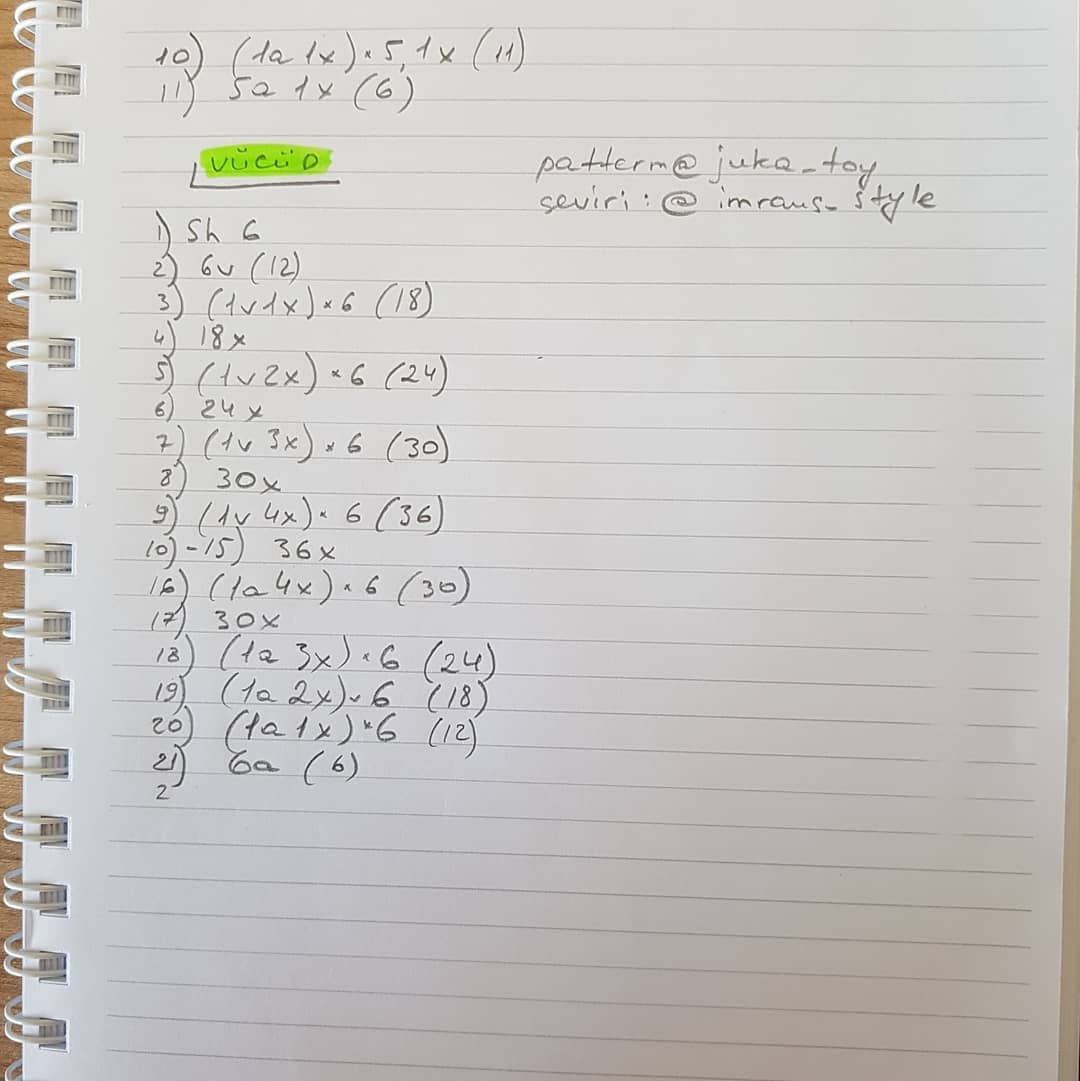 10) (1a 1x) × 5, 1x (11)
11) 5a 1x (6)
VÜCÜD
pattern@ juka_toy
çeviri : @ imraus_style
1) Sh 6
2) 6v (12)
3) (1v1x) × 6 (18)
4) 18x
5) (1v2x) × 6 (24)
6) 24x
7) (1v 3x) × 6 (30)
8) 30x
9) (1v 4x) × 6 (36)
10)-15) 36x
16) (1a 4x) × 6 (30)
17) 30x
18) (1a 3x) × 6 (24)
19) (1a 2x) × 6 (18)
20) (1a 1x) × 6 (12)
21) 6a (6)
2